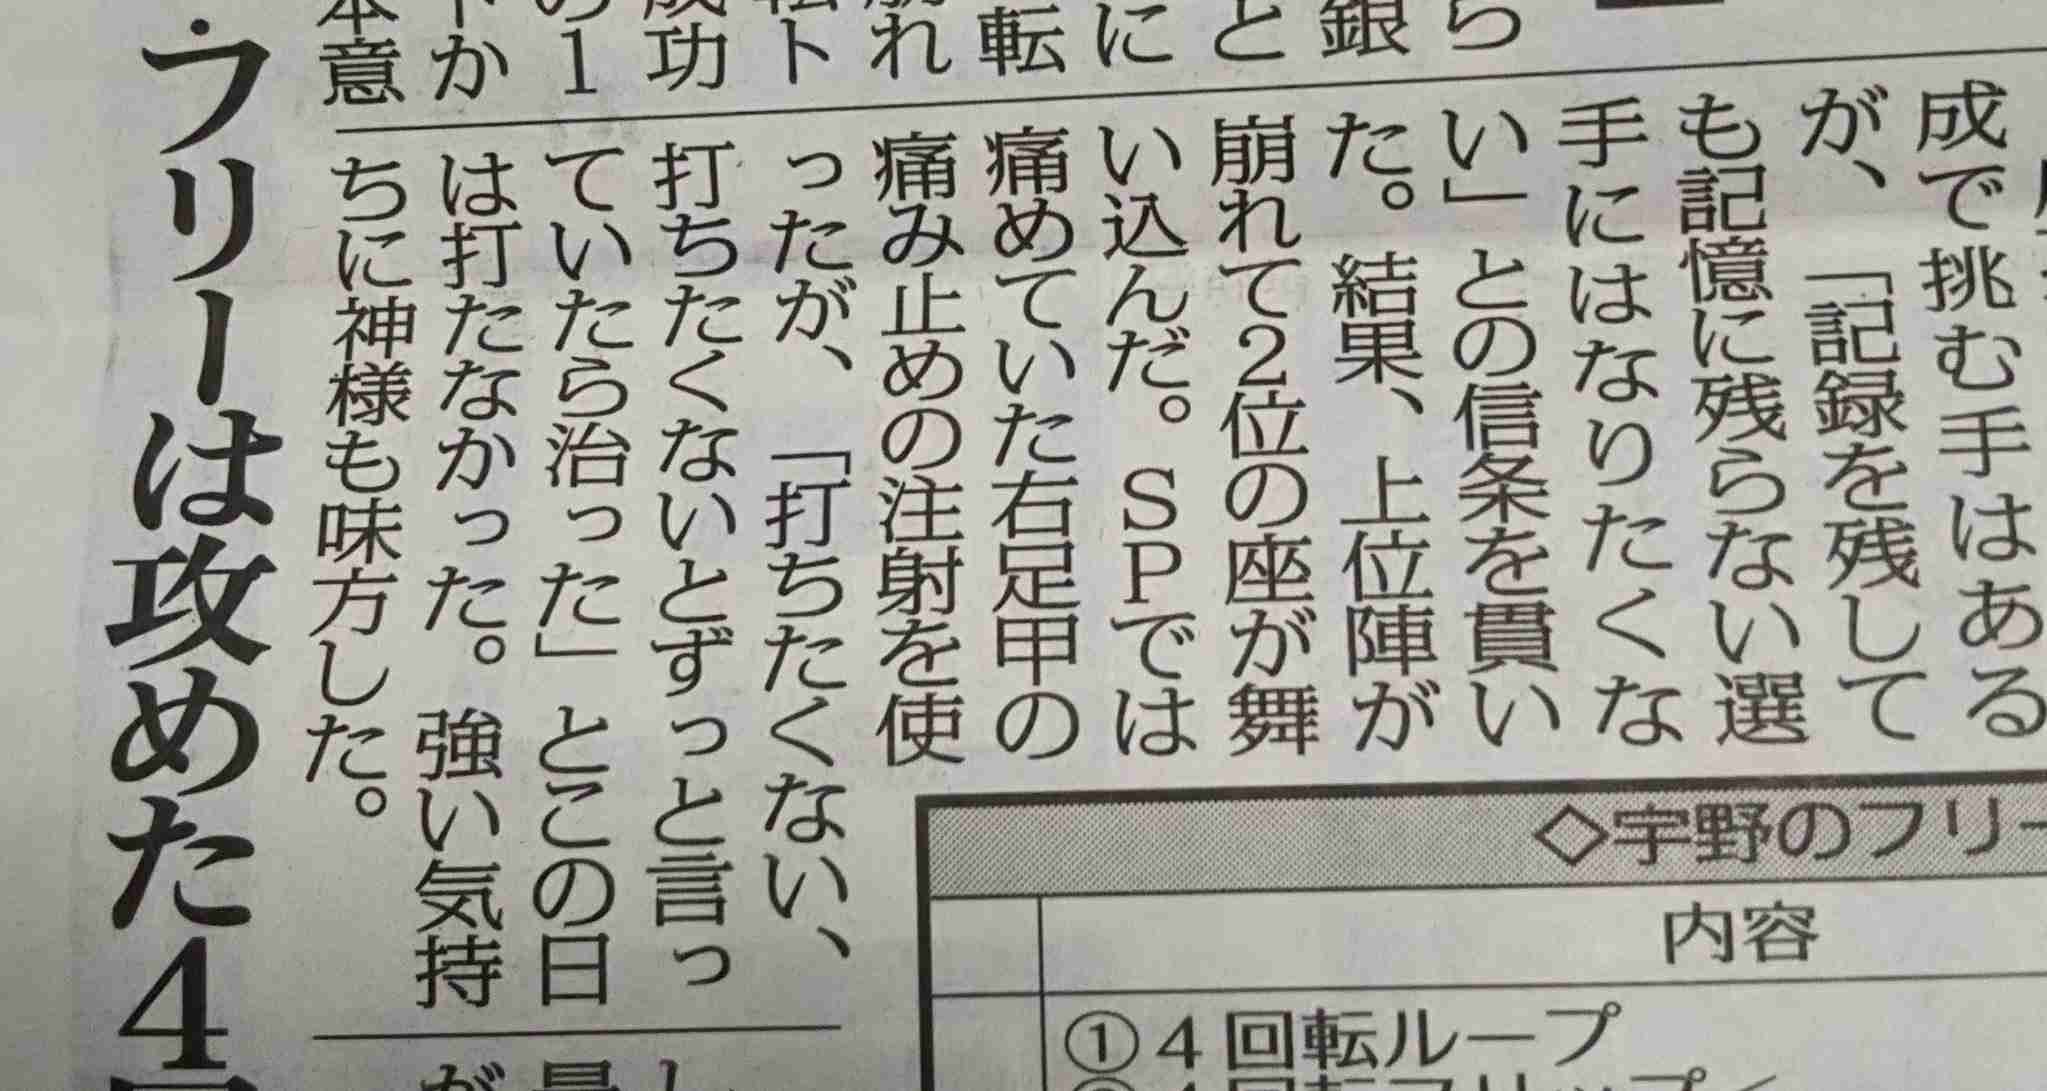 ら
銀
と
に
転
崩れ
転ト
成功
の1
トか
本意
成で挑む手はある
が、「記録を残して
も記憶に残らない選
手にはなりたくな
い」との信条を貫い
た。結果、上位陣が
崩れて2位の座が舞
い込んだ。SPでは
痛めていた右足甲の
痛み止めの注射を使
ったが、「打ちたくない、
打ちたくないとずっと言っ
ていたら治った」とこの日
は打たなかった。強い気持
ちに神様も味方した。
・フリーは攻めた4回
◇宇野のフリー
内容
①4回転ループ
②4回転フリップ